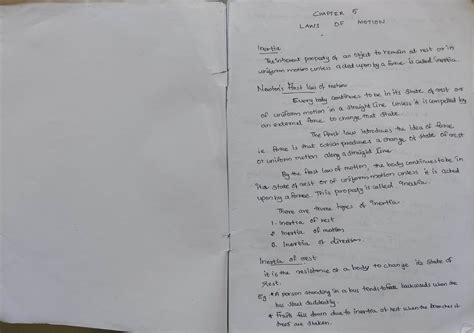 CHAPTER 5
LAWS OF MOTION
Inertia
The inherent property of an object to remain at rest or in
uniform motion unless acted upon by a force is called inertia.
Newton's First law of motion
Every body continues to be in its state of rest or
of uniform motion in a straight line unless it is compelled by
an external force to change that state.
The first law introduces the idea of force
i.e force is that which produces a change of state of rest
or uniform motion along a straight line
By the first law of motion, the body continues to be in
the state of rest or of uniform motion unless it is acted
upon by a force. This property is called Inertia.
There are three types of inertia.
1. Inertia of rest
2. Inertia of motion
3. Inertia of direction.
Inertia of rest
it is the resistance of a body to change its state of
rest.
Eg * A person standing in a bus tends to fall backwards when the
bus start suddenly.
* Fruits fall down due to inertia of rest when the branches of
trees are shaken.